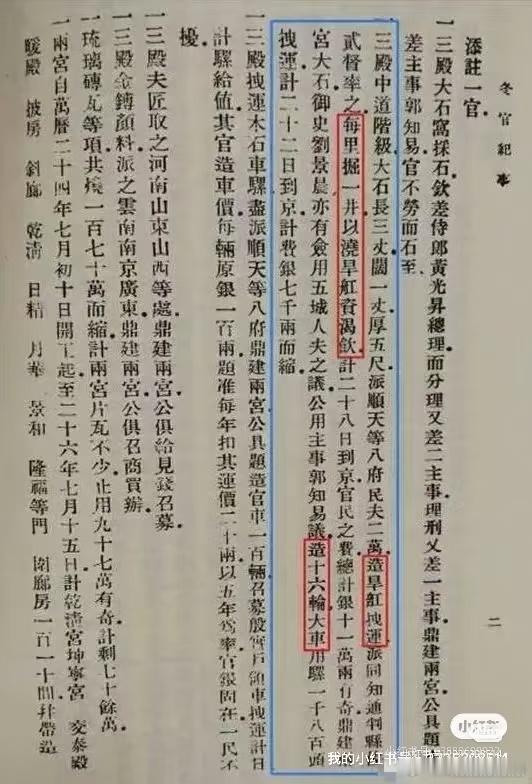 冬官紀事
二
添註一官
一三殿大石窩採石欽差侍郎黃光昇總理而分理又差二主事理刑又差一主事鼎建兩宮公具題
差主事郭知易官不勞而石至
一三殿中道階級大石長三丈闊一丈厚五尺派順天等八府民夫二萬造旱舡拽運派同知通判縣
貳督率之每里掘一井以澆旱舡資渴飲計二十八日到京官民之費總計銀十一萬兩有奇鼎建
宮大石御史劉景晨亦有僉用五城人夫之議公用主事郭知易議造十六輪大車用騾一千八百頭
拽運計二十二日到京計費銀七千兩而縮
一三殿拽運木石車騾盡派順天等八府鼎建兩宮公具題造官車一百輛召募殷實戶領車拽運計日
計騾給値其官造車價每輛原銀一百兩題准每年扣其運價二十兩以五年爲率官銀固在民不
擾
一三殿夫匠取之河南山東山西等處鼎建兩宮公俱給見錢召募
一三殿金顏料派之雲南南京廣東鼎建兩宮公俱召商買辦
一琉璃磚瓦等項共燒一百七十萬而縮計兩宮片瓦不少止用九十七萬有奇計剩七十餘萬
一兩宮自萬曆二十四年七月初十日開工起至二十六年七月十五日計乾清宮坤寧宮 交泰殿
暖殿 披房 斜廊 乾清 日精 月華 景和 隆福等門 圍廊房一百一十間幷帶造
小红书